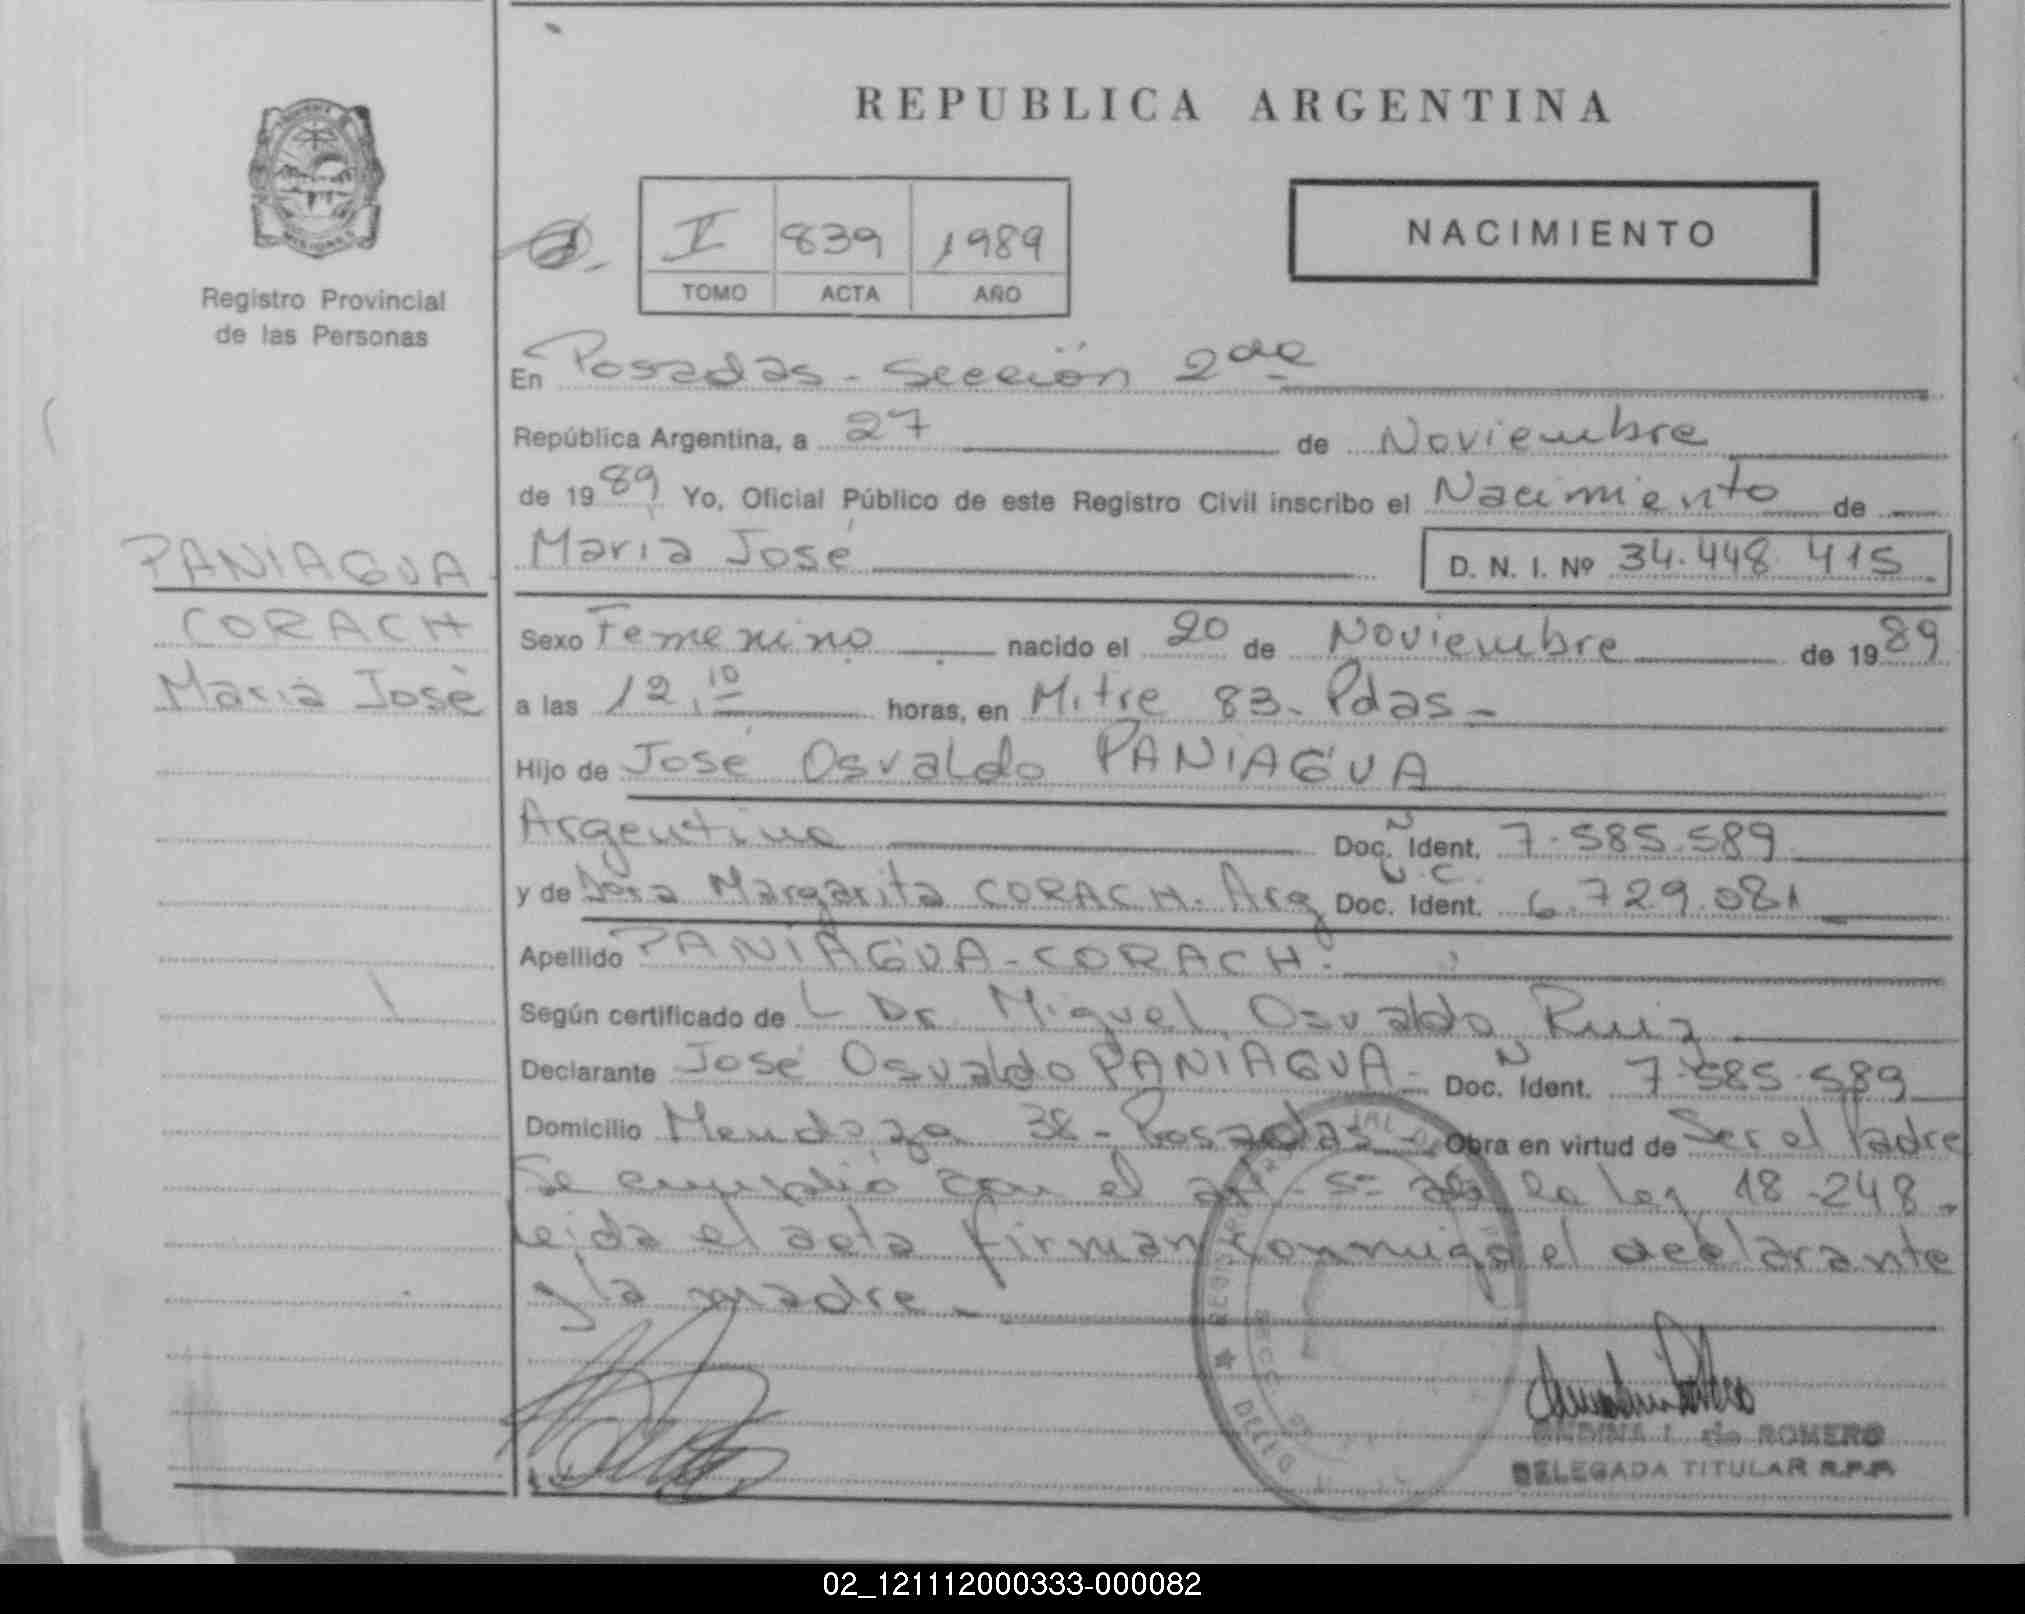 REPUBLICA ARGENTINA
I 839 1989
TOMO ACTA AÑO
NACIMIENTO
Registro Provincial
de las Personas
PANIAGUA
CORACH
María José
En Posadas - Sección 2da
República Argentina, a 27 de Noviembre
de 1989 Yo, Oficial Público de este Registro Civil inscribo el Nacimiento de
María José D. N. I. Nº 34.448.415
Sexo Femenino nacido el 20 de Noviembre de 1989
a las 12,10 horas, en Mitre 83 - Pdas -
Hijo de José Osvaldo PANIAGUA
Argentino Doc. Ident. 7.585.589
y de Margarita CORACH. Arg Doc. Ident. L.C. 6.729.081
Apellido PANIAGUA - CORACH.
Según certificado de L Dr Miguel Osvaldo Ruiz
Declarante José Osvaldo PANIAGUA - Doc. Ident. 7.585.589
Domicilio Mendoza 38 - Posadas - Obra en virtud de Ser el Padre
Se cumplió con el art. 5º de la ley 18.248.
Leida el acta firman conmigo el declarante
y la madre -
I. de ROMERO
DELEGADA TITULAR R.P.P.
02_121112000333-000082